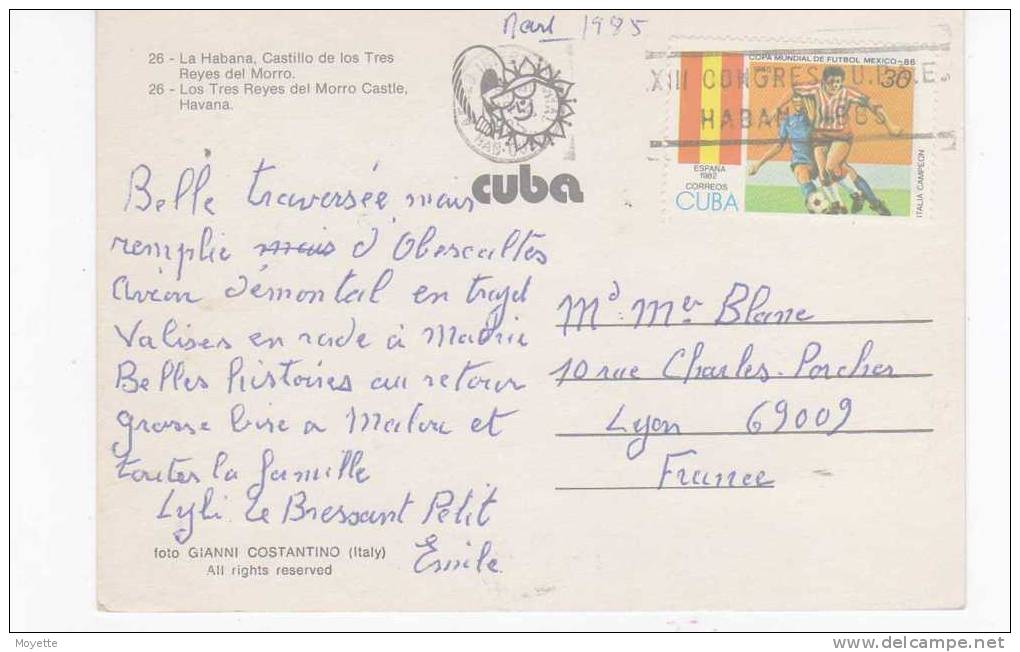 Mars 1985
26 - La Habana, Castillo de los Tres
Reyes del Morro.
26 - Los Tres Reyes del Morro Castle,
Havana.
cuba
COPA MUNDIAL DE FUTBOL MEXICO-86
30
XIII CONGRESO U.P.A.E.
HABANA 1985
ESPAÑA
1982
CORREOS
CUBA
ITALIA CAMPEON
Belle traversée mais
remplie mais d'Obscaltes
Avion démontal en trajet
Valises en rade à Madrid
Belles histoires au retour
grosse bise a Malou et
toutes la famille
Lyli Le Bressant Petit
Emile
Md. Mer Blanc
10 rue Charles-Porcher
Lyon 69009
France
foto GIANNI COSTANTINO (Italy)
All rights reserved
Moyette
www.delcampe.net